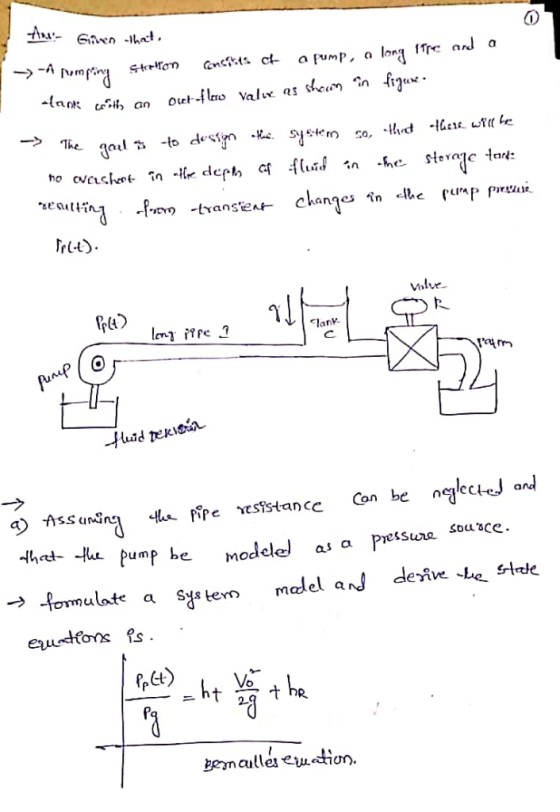 ①
Ans:- Given that,
→ A pumping station consists of a pump, a long pipe and a
tank with an out-flow valve as shown in figure.
→ The goal is to design the system so, that there will be
no overshoot in the depth of fluid in the storage tank
resulting from transient changes in the pump pressure
Pp(t).
valve
R
Pp(t)
long pipe I
q↓
Tank
C
patm
pump
fluid reservoir
→
a) Assuming the pipe resistance can be neglected and
that the pump be modeled as a pressure source.
→ formulate a system model and derive the state
equations is.
Pp(t)/Pg = h+ V₀²/2g + hR
Bernoulle's equation.